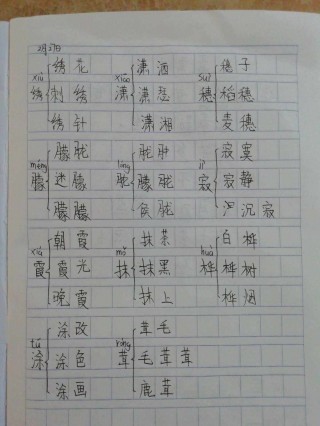 2月27日
xiù 绣花 xiāo 潇洒 suì 穗子
绣 刺绣 潇 潇愁 穗 稻穗
绣针 潇湘 麦穗
méng 朦胧 lóng 胧肿 jì 寂寞
朦 迷朦 胧 朦胧 寂 寂静
朦朦 胧 沉寂
xiá 朝霞 mǒ 抹茶 huà 白桦
霞 霞光 抹 抹黑 桦 桦树
晚霞 抹上 桦烟
tú 涂改 róng 茸毛
涂 涂色 茸 毛茸茸
涂画 鹿茸